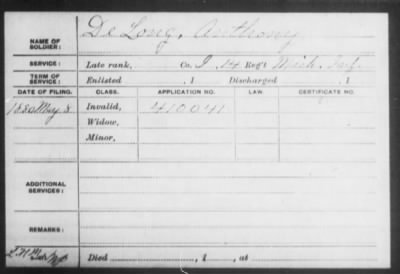 NAME OF SOLDIER: De Long, Anthony
SERVICE: Late rank, Co. I, 14 Reg't Mich. Inf.
TERM OF SERVICE: Enlisted , 1 Discharged , 1
DATE OF FILING. CLASS. APPLICATION NO. LAW. CERTIFICATE NO.
1880 May 8 Invalid, 410041
Widow,
Minor,
ADDITIONAL SERVICES:
REMARKS:
Died , 1 , at